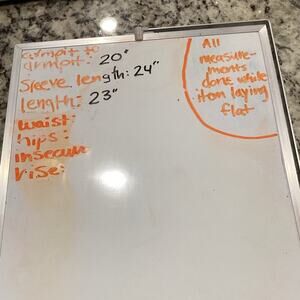 armpit to
armpit: 20"
Sleeve length: 24"
length: 23"
waist:
hips:
insecum
rise:
All
measure-
ments
done while
item laying
flat